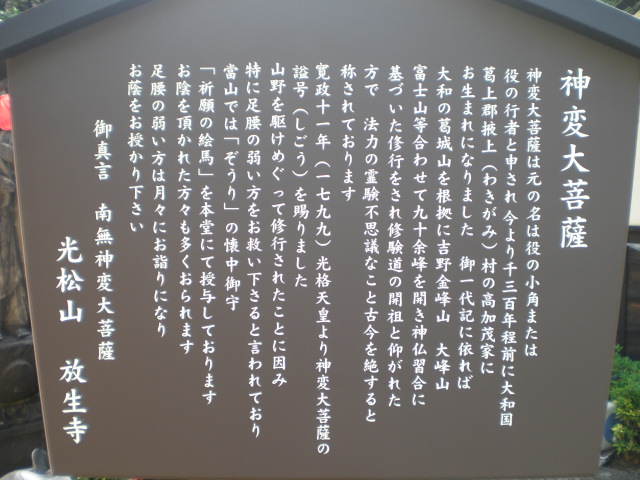 神変大菩薩
神変大菩薩は元の名は役の小角または
役の行者と申され今より千三百年程前に大和国
葛上郡掖上（わきがみ）村の高加茂家に
お生まれになりました　御一代記に依れば
大和の葛城山を根拠に吉野金峰山　大峰山
富士山等合わせて九十余峰を開き神仏習合に
基づいた修行をされ修験道の開祖と仰がれた
方で　法力の霊験不思議なこと古今を絶すると
称されております
寛政十一年（一七九九）光格天皇より神変大菩薩の
諡号（しごう）を賜りました
山野を駆けめぐって修行されたことに因み
特に足腰の弱い方をお救い下さると言われており
當山では「ぞうり」の懐中御守
「祈願の絵馬」を本堂にて授与しております
お陰を頂かれた方々も多くおられます
足腰の弱い方は月々にお詣りになり
お蔭をお授かり下さい
御真言　南無神変大菩薩
光松山　放生寺